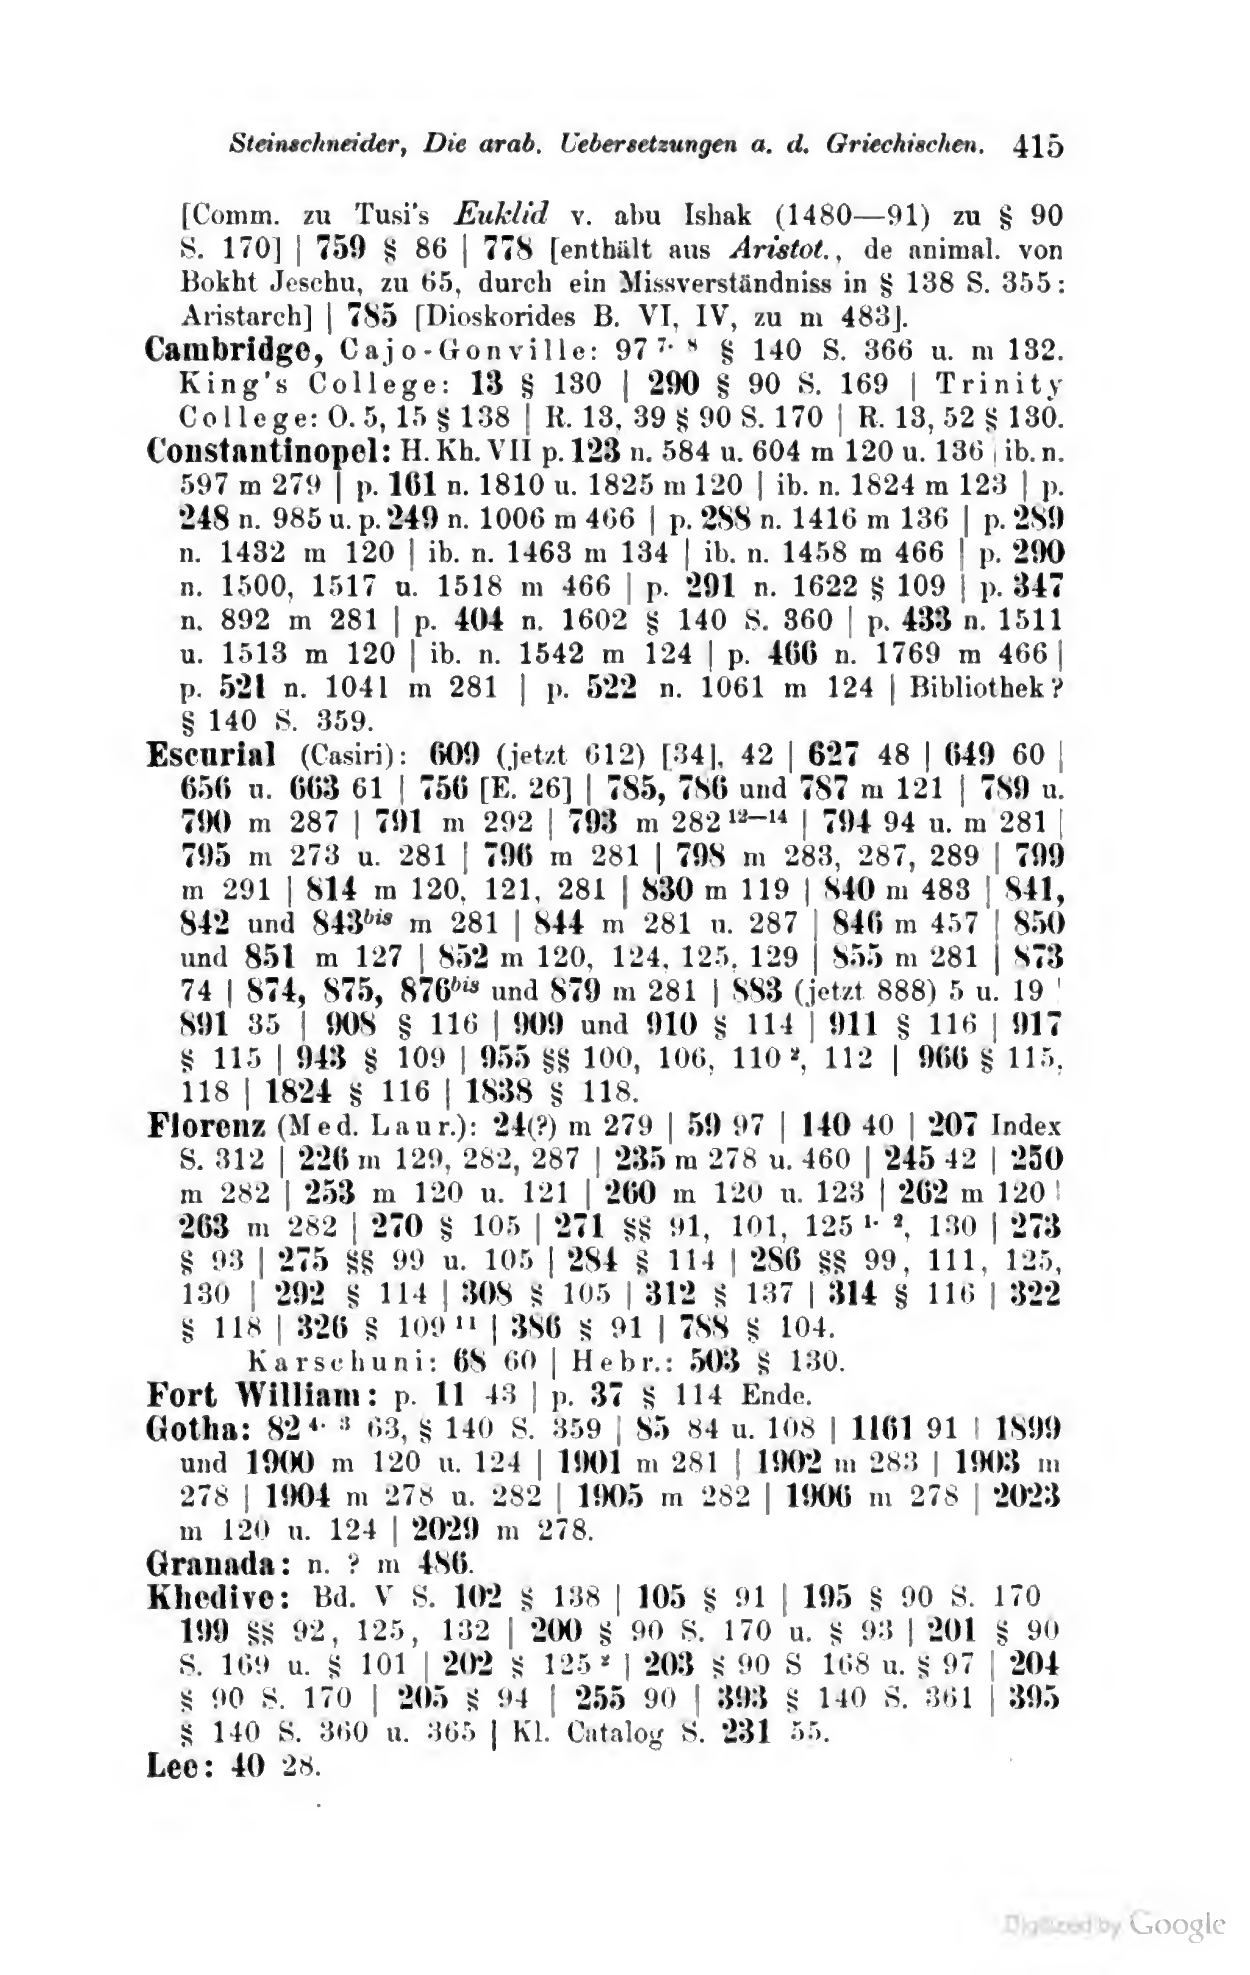 Steinschneider, Die arab. Uebersetzungen a. d. Griechischen. 415
[Comm. zu Tusi's Euklid v. abu Ishak (1480—91) zu § 90
S. 170] | 759 § 86 | 778 [enthält aus Aristot., de animal. von
Bokht Jeschu, zu 65, durch ein Missverständniss in § 138 S. 355:
Aristarch] | 785 [Dioskorides B. VI, IV, zu m 483].
Cambridge, Cajo-Gonville: 97 7. 8 § 140 S. 366 u. m 132.
King's College: 13 § 130 | 290 § 90 S. 169 | Trinity
College: O. 5, 15 § 138 | R. 13, 39 § 90 S. 170 | R. 13, 52 § 130.
Constantinopel: H. Kh. VII p. 123 n. 584 u. 604 m 120 u. 136 | ib. n.
597 m 279 | p. 161 n. 1810 u. 1825 m 120 | ib. n. 1824 m 123 | p.
248 n. 985 u. p. 249 n. 1006 m 466 | p. 288 n. 1416 m 136 | p. 289
n. 1432 m 120 | ib. n. 1463 m 134 | ib. n. 1458 m 466 | p. 290
n. 1500, 1517 u. 1518 m 466 | p. 291 n. 1622 § 109 | p. 347
n. 892 m 281 | p. 404 n. 1602 § 140 S. 360 | p. 433 n. 1511
u. 1513 m 120 | ib. n. 1542 m 124 | p. 466 n. 1769 m 466 |
p. 521 n. 1041 m 281 | p. 522 n. 1061 m 124 | Bibliothek?
§ 140 S. 359.
Escurial (Casiri): 609 (jetzt 612) [34], 42 | 627 48 | 649 60 |
656 u. 663 61 | 756 [E. 26] | 785, 786 und 787 m 121 | 789 u.
790 m 287 | 791 m 292 | 793 m 282 12—14 | 794 94 u. m 281 |
795 m 273 u. 281 | 796 m 281 | 798 m 283, 287, 289 | 799
m 291 | 814 m 120, 121, 281 | 830 m 119 | 840 m 483 | 841,
842 und 843bis m 281 | 844 m 281 u. 287 | 846 m 457 | 850
und 851 m 127 | 852 m 120, 124, 125, 129 | 855 m 281 | 873
74 | 874, 875, 876bis und 879 m 281 | 883 (jetzt 888) 5 u. 19 |
891 35 | 908 § 116 | 909 und 910 § 114 | 911 § 116 | 917
§ 115 | 943 § 109 | 955 §§ 100, 106, 110 2, 112 | 966 § 115,
118 | 1824 § 116 | 1838 § 118.
Florenz (Med. Laur.): 24(?) m 279 | 59 97 | 140 40 | 207 Index
S. 312 | 226 m 129, 282, 287 | 235 m 278 u. 460 | 245 42 | 250
m 282 | 253 m 120 u. 121 | 260 m 120 u. 123 | 262 m 120 |
263 m 282 | 270 § 105 | 271 §§ 91, 101, 125 1. 2, 130 | 273
§ 93 | 275 §§ 99 u. 105 | 284 § 114 | 286 §§ 99, 111, 125,
130 | 292 § 114 | 308 § 105 | 312 § 137 | 314 § 116 | 322
§ 118 | 326 § 109 11 | 386 § 91 | 788 § 104.
Karschuni: 68 60 | Hebr.: 503 § 130.
Fort William: p. 11 43 | p. 37 § 114 Ende.
Gotha: 82 4. 3 63, § 140 S. 359 | 85 84 u. 108 | 1161 91 | 1899
und 1900 m 120 u. 124 | 1901 m 281 | 1902 m 283 | 1903 m
278 | 1904 m 278 u. 282 | 1905 m 282 | 1906 m 278 | 2023
m 120 u. 124 | 2029 m 278.
Granada: n. ? m 486.
Khedive: Bd. V S. 102 § 138 | 105 § 91 | 195 § 90 S. 170
199 §§ 92, 125, 132 | 200 § 90 S. 170 u. § 93 | 201 § 90
S. 169 u. § 101 | 202 § 125 2 | 203 § 90 S 168 u. § 97 | 204
§ 90 S. 170 | 205 § 94 | 255 90 | 393 § 140 S. 361 | 395
§ 140 S. 360 u. 365 | Kl. Catalog S. 231 55.
Lee: 40 28.
Digitized by Google